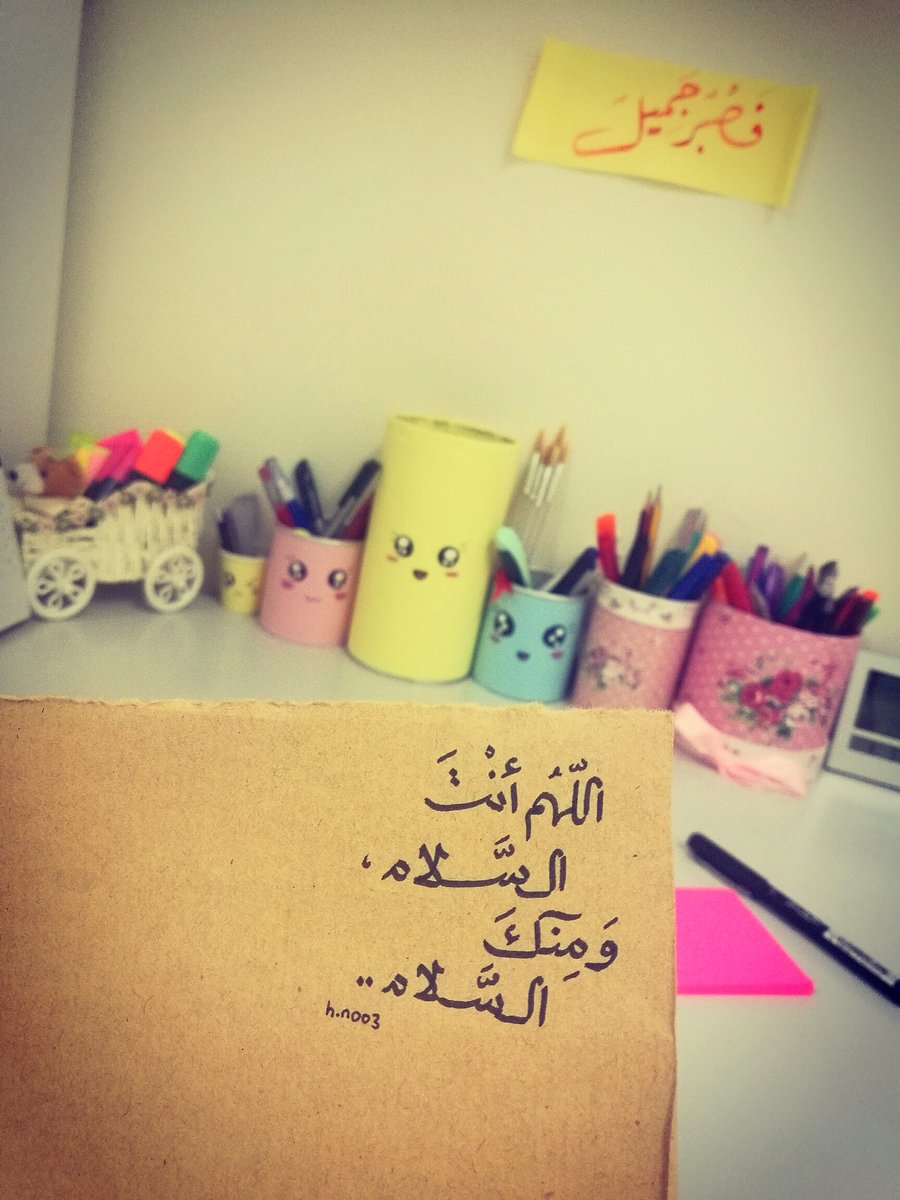 فَصْبَرُ جَميلَ
اللّهُم أَنْتَ
السَّلام،
وَمِنكَ
السَّلام..
h.n003